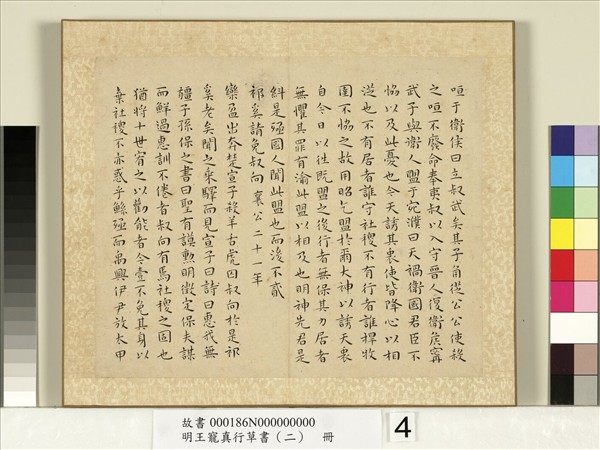 咺于衛侯曰立叔武矣其子角從公公使殺
之咺不廢命奉夷叔以入守晉人復衛侯甯
武子與衛人盟于宛濮曰天禍衛國君臣不
協以及此憂也今天誘其衷使皆降心以相
從也不有居者誰守社稷不有行者誰捍牧
圉不協之故用昭乞盟於爾大神以誘天衷
自今日以往既盟之後行者無保其力居者
無懼其罪有渝此盟以相及也明神先君是
糾是殛國人聞此盟也而後不貳
祁奚請免叔向 襄公二十一年
欒盈出奔楚宣子殺羊舌虎囚叔向於是祁
奚老矣聞之乘驛而見宣子曰詩曰惠我無
疆子孫保之書曰聖有謨勳明徵定保夫謀
而鮮過惠訓不倦者叔向有焉社稷之固也
猶將十世宥之以勸能者今壹不免其身以
棄社稷不亦惑乎鯀殛而禹興伊尹放太甲
故書 000186N000000000
明王寵真行草書（二） 冊
4